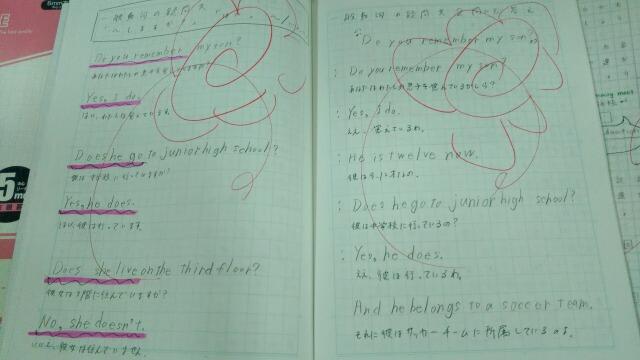 一般動詞の疑問文
Do you remember my son?
Yes, I do.
はい、わたしは覚えています。
Does he go to junior high school?
彼は中学校に行っていますか?
Yes, he does.
はい、彼は行っています。
Does she live on the third floor?
彼女は3階に住んでいますか?
No, she doesn't.
いいえ、彼女は住んでいません。
一般動詞の疑問文
Do you remember my son?
: Do you remember my son?
あなたはわたしの息子を覚えているかしら?
: Yes, I do.
ええ、覚えているわ。
: He is twelve now.
彼は
: Does he go to junior high school?
彼は中学校に行っているの?
: Yes, he does.
ええ、彼は行っているわ。
And he belongs to a soccer team.
それに彼はサッカーチームに所属しているのよ。